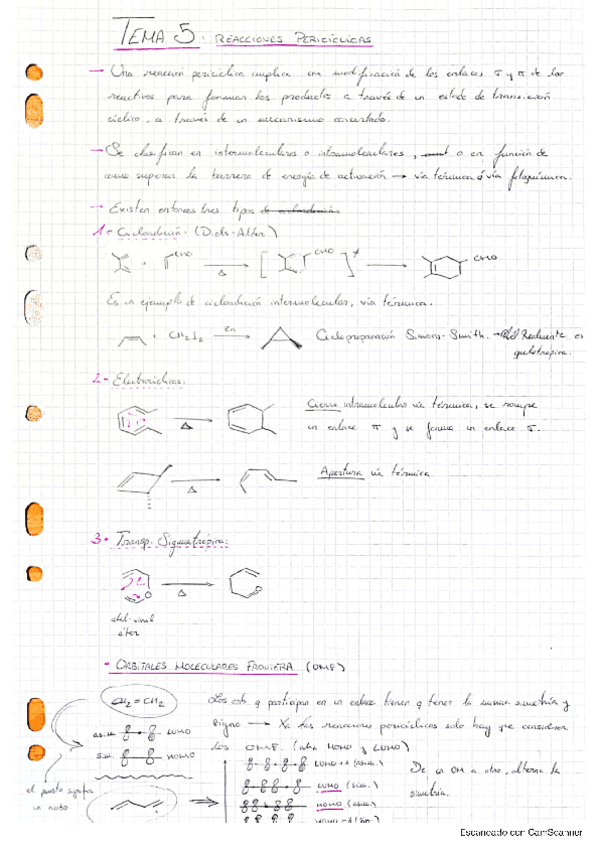 TEMA 5. REACCIONES PERICÍCLICAS
→ Una reacción pericíclica implica una modificación de los enlaces σ y π de los
reactivos para formar los productos a través de un estado de transición
cíclico, a través de un mecanismo concertado.
→ Se clasifican en intermoleculares o intramoleculares, o en función de
como superar la barrera de energía de activación → vía térmica ó vía fotoquímica.
→ Existen entonces tres tipos de cicloadición
1- Cicloadición: (Diels-Alder)
+ CHO Δ [ CHO ]‡ CHO
Es un ejemplo de cicloadición intermolecular, vía térmica.
+ CH2I2 Zn Ciclopropanación Simons-Smith. → Realmente es
quelotrópica.
2- Electrocíclica:
Δ Cierre intramolecular vía térmica, se rompe
un enlace π y se forma un enlace σ.
Δ Apertura vía térmica
3- Transp. Sigmatrópica:
O Δ O
alil-vinil
éter
- ORBITALES MOLECULARES FRONTERA (OMF)
CH2=CH2 Los orb. q participan en un enlace tienen q tener la misma simetría y
signo → Xa las reacciones pericíclicas solo hay que considerar
asim. LUMO los OMF. (aka HOMO y LUMO)
sim. HOMO LUMO+1 (asim.) De un OM a otro, alterna la
simetría.
LUMO (sim.)
el punto significa
un nodo
HOMO (asim.)
HOMO-1 (sim.)
Escaneado con CamScanner